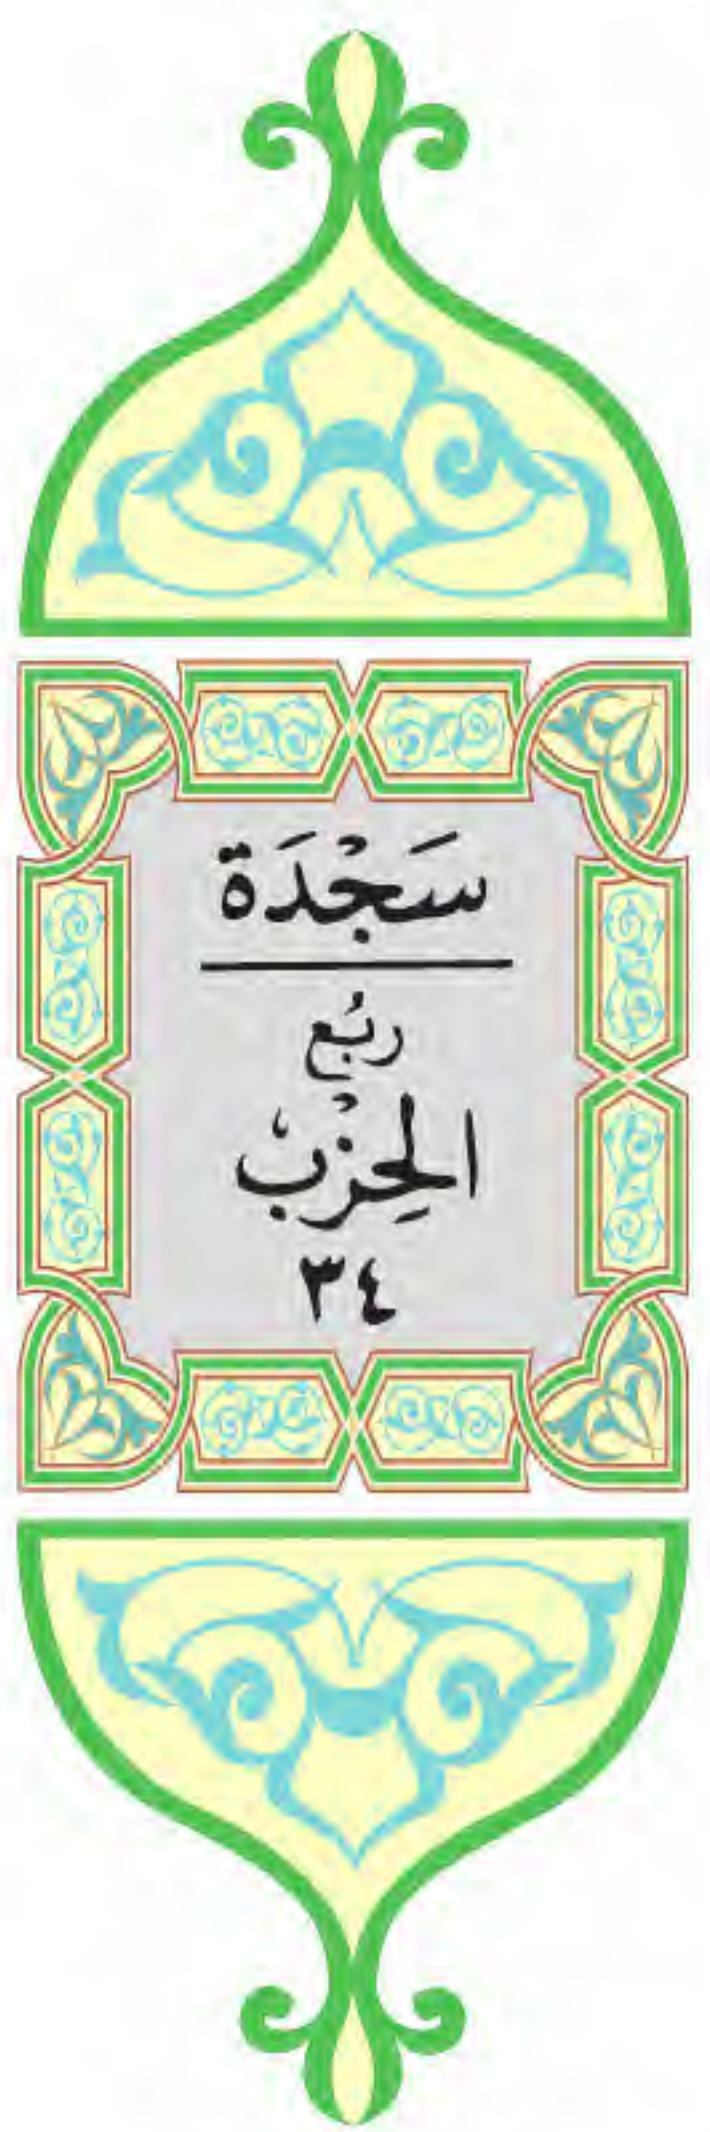 سَجْدَة
رُبُع
الْحِزْب
٣٤